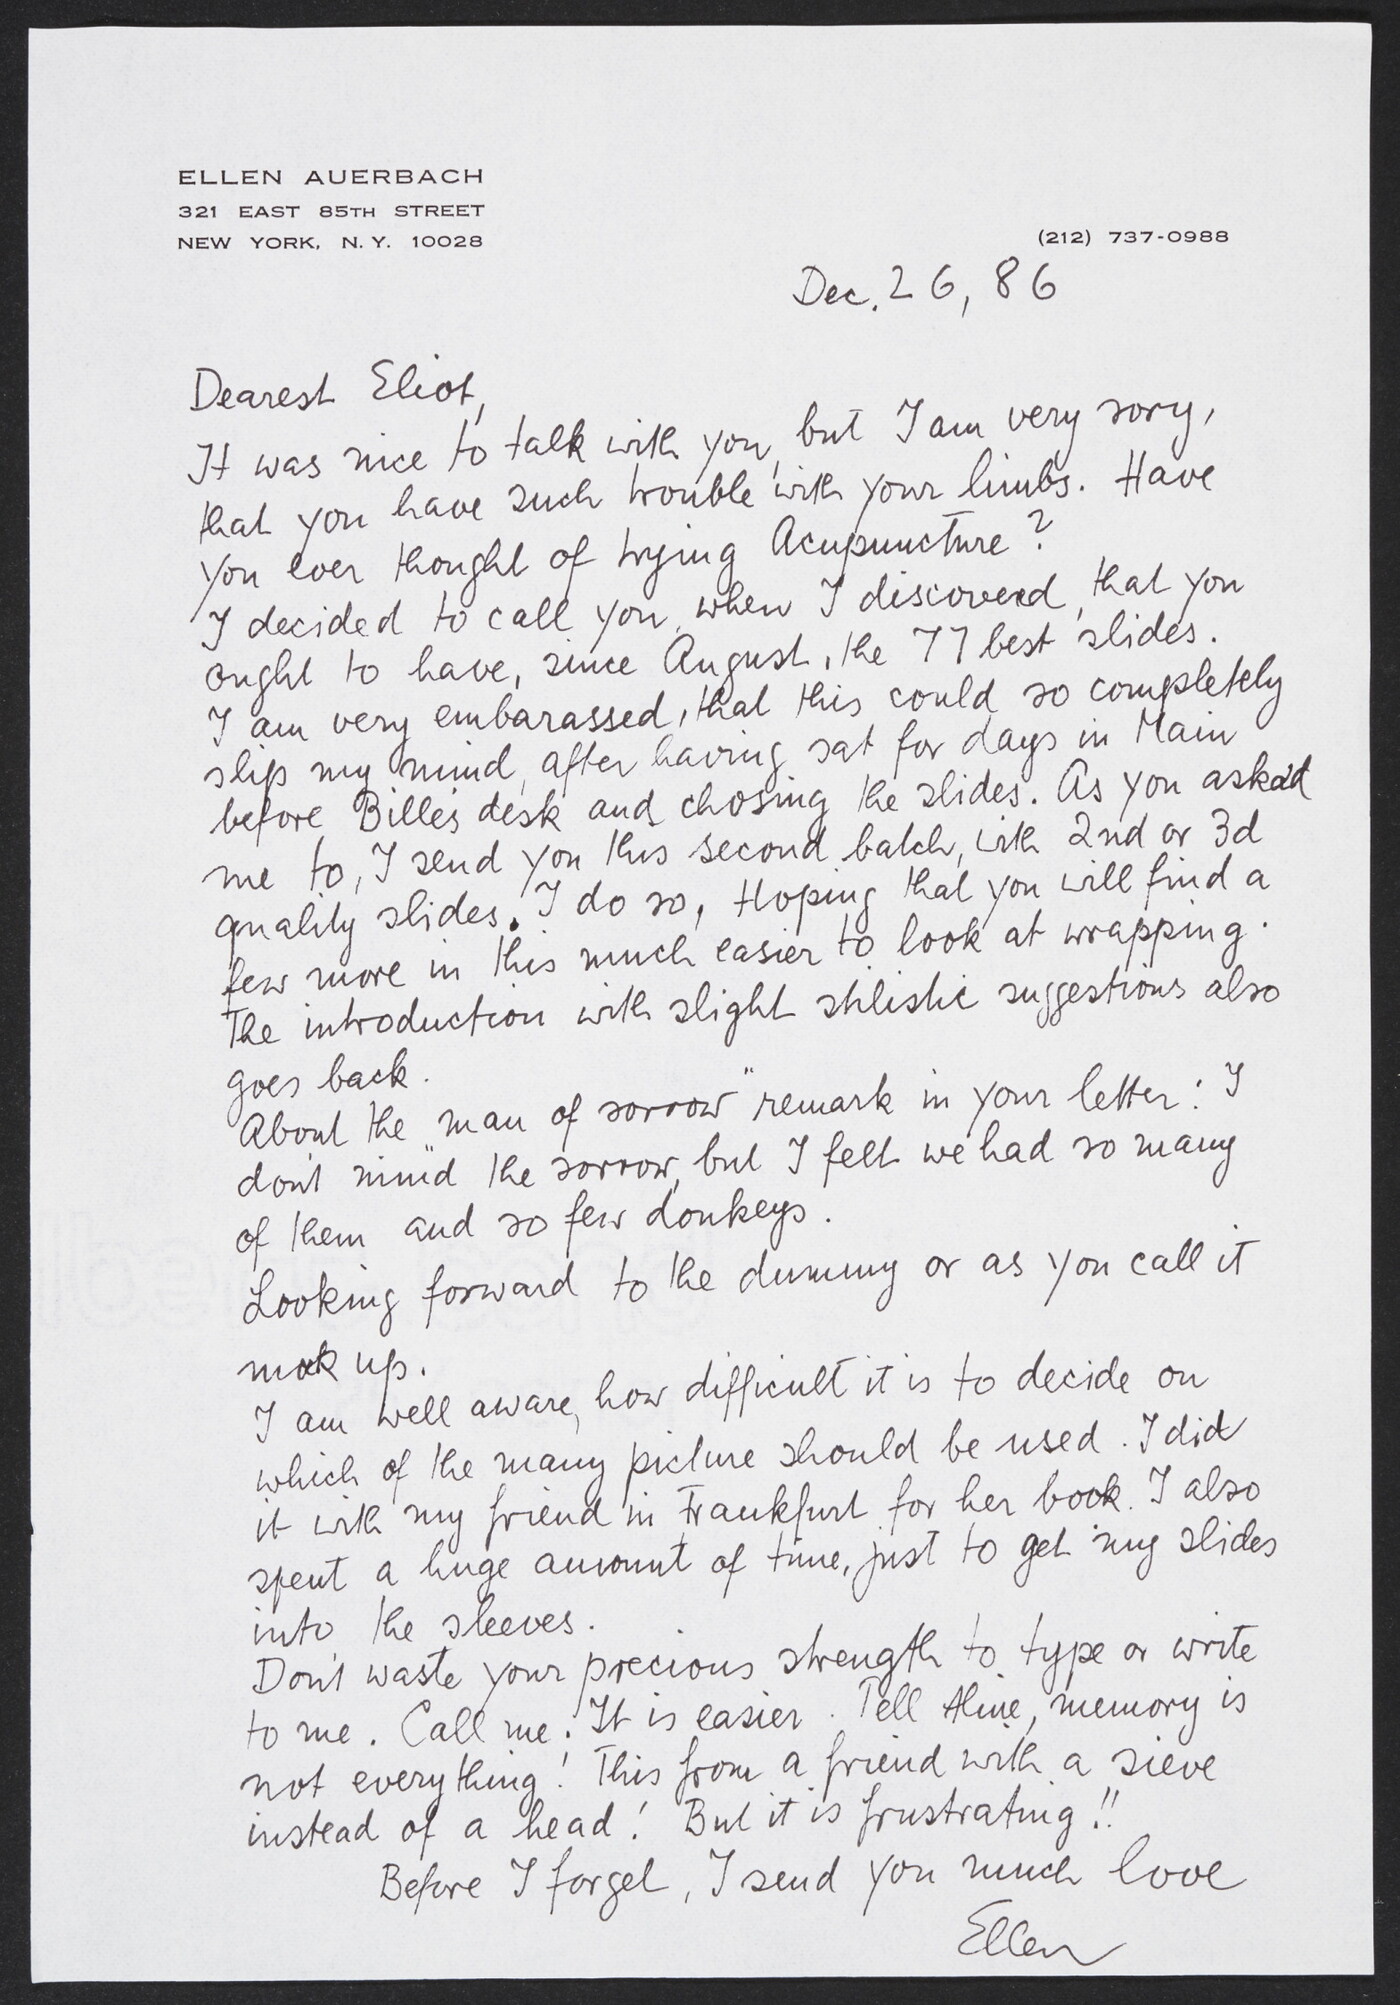 ELLEN AUERBACH
321 EAST 85TH STREET
NEW YORK, N.Y. 10028
(212) 737-0988
Dec. 26, 86
Dearest Eliot,
It was nice to talk with you, but I am very sory,
that you have such trouble with your limbs. Have
you ever thought of trying Acupuncture?
I decided to call you, when I discoverd, that you
ought to have, since August, the 77 best slides.
I am very embarassed, that this could so completely
slip my mind, after having sat for days in Main
before Bille's desk and chosing the slides. As you askd
me to, I send you this second batch, with 2nd or 3d
quality slides. I do so, Hoping that you will find a
few more in this much easier to look at wrapping.
The introduction with slight stilistic suggestions also
goes back.
About the "man of sorrow" remark in your letter: I
don't mind the sorrow, but I felt we had so many
of them and so few donkeys.
Looking forward to the dummy or as you call it
mock up.
I am well aware, how difficult it is to decide on
which of the many picture should be used. I did
it with my friend in Frankfurt for her book. I also
spent a huge amount of time, just to get my slides
into the sleeves.
Don't waste your precious strength to type or write
to me. Call me! It is easier. Tell Aline, memory is
not everything! This from a friend with a sieve
instead of a head! But it is frustrating!!
Before I forget, I send you much love
Ellen